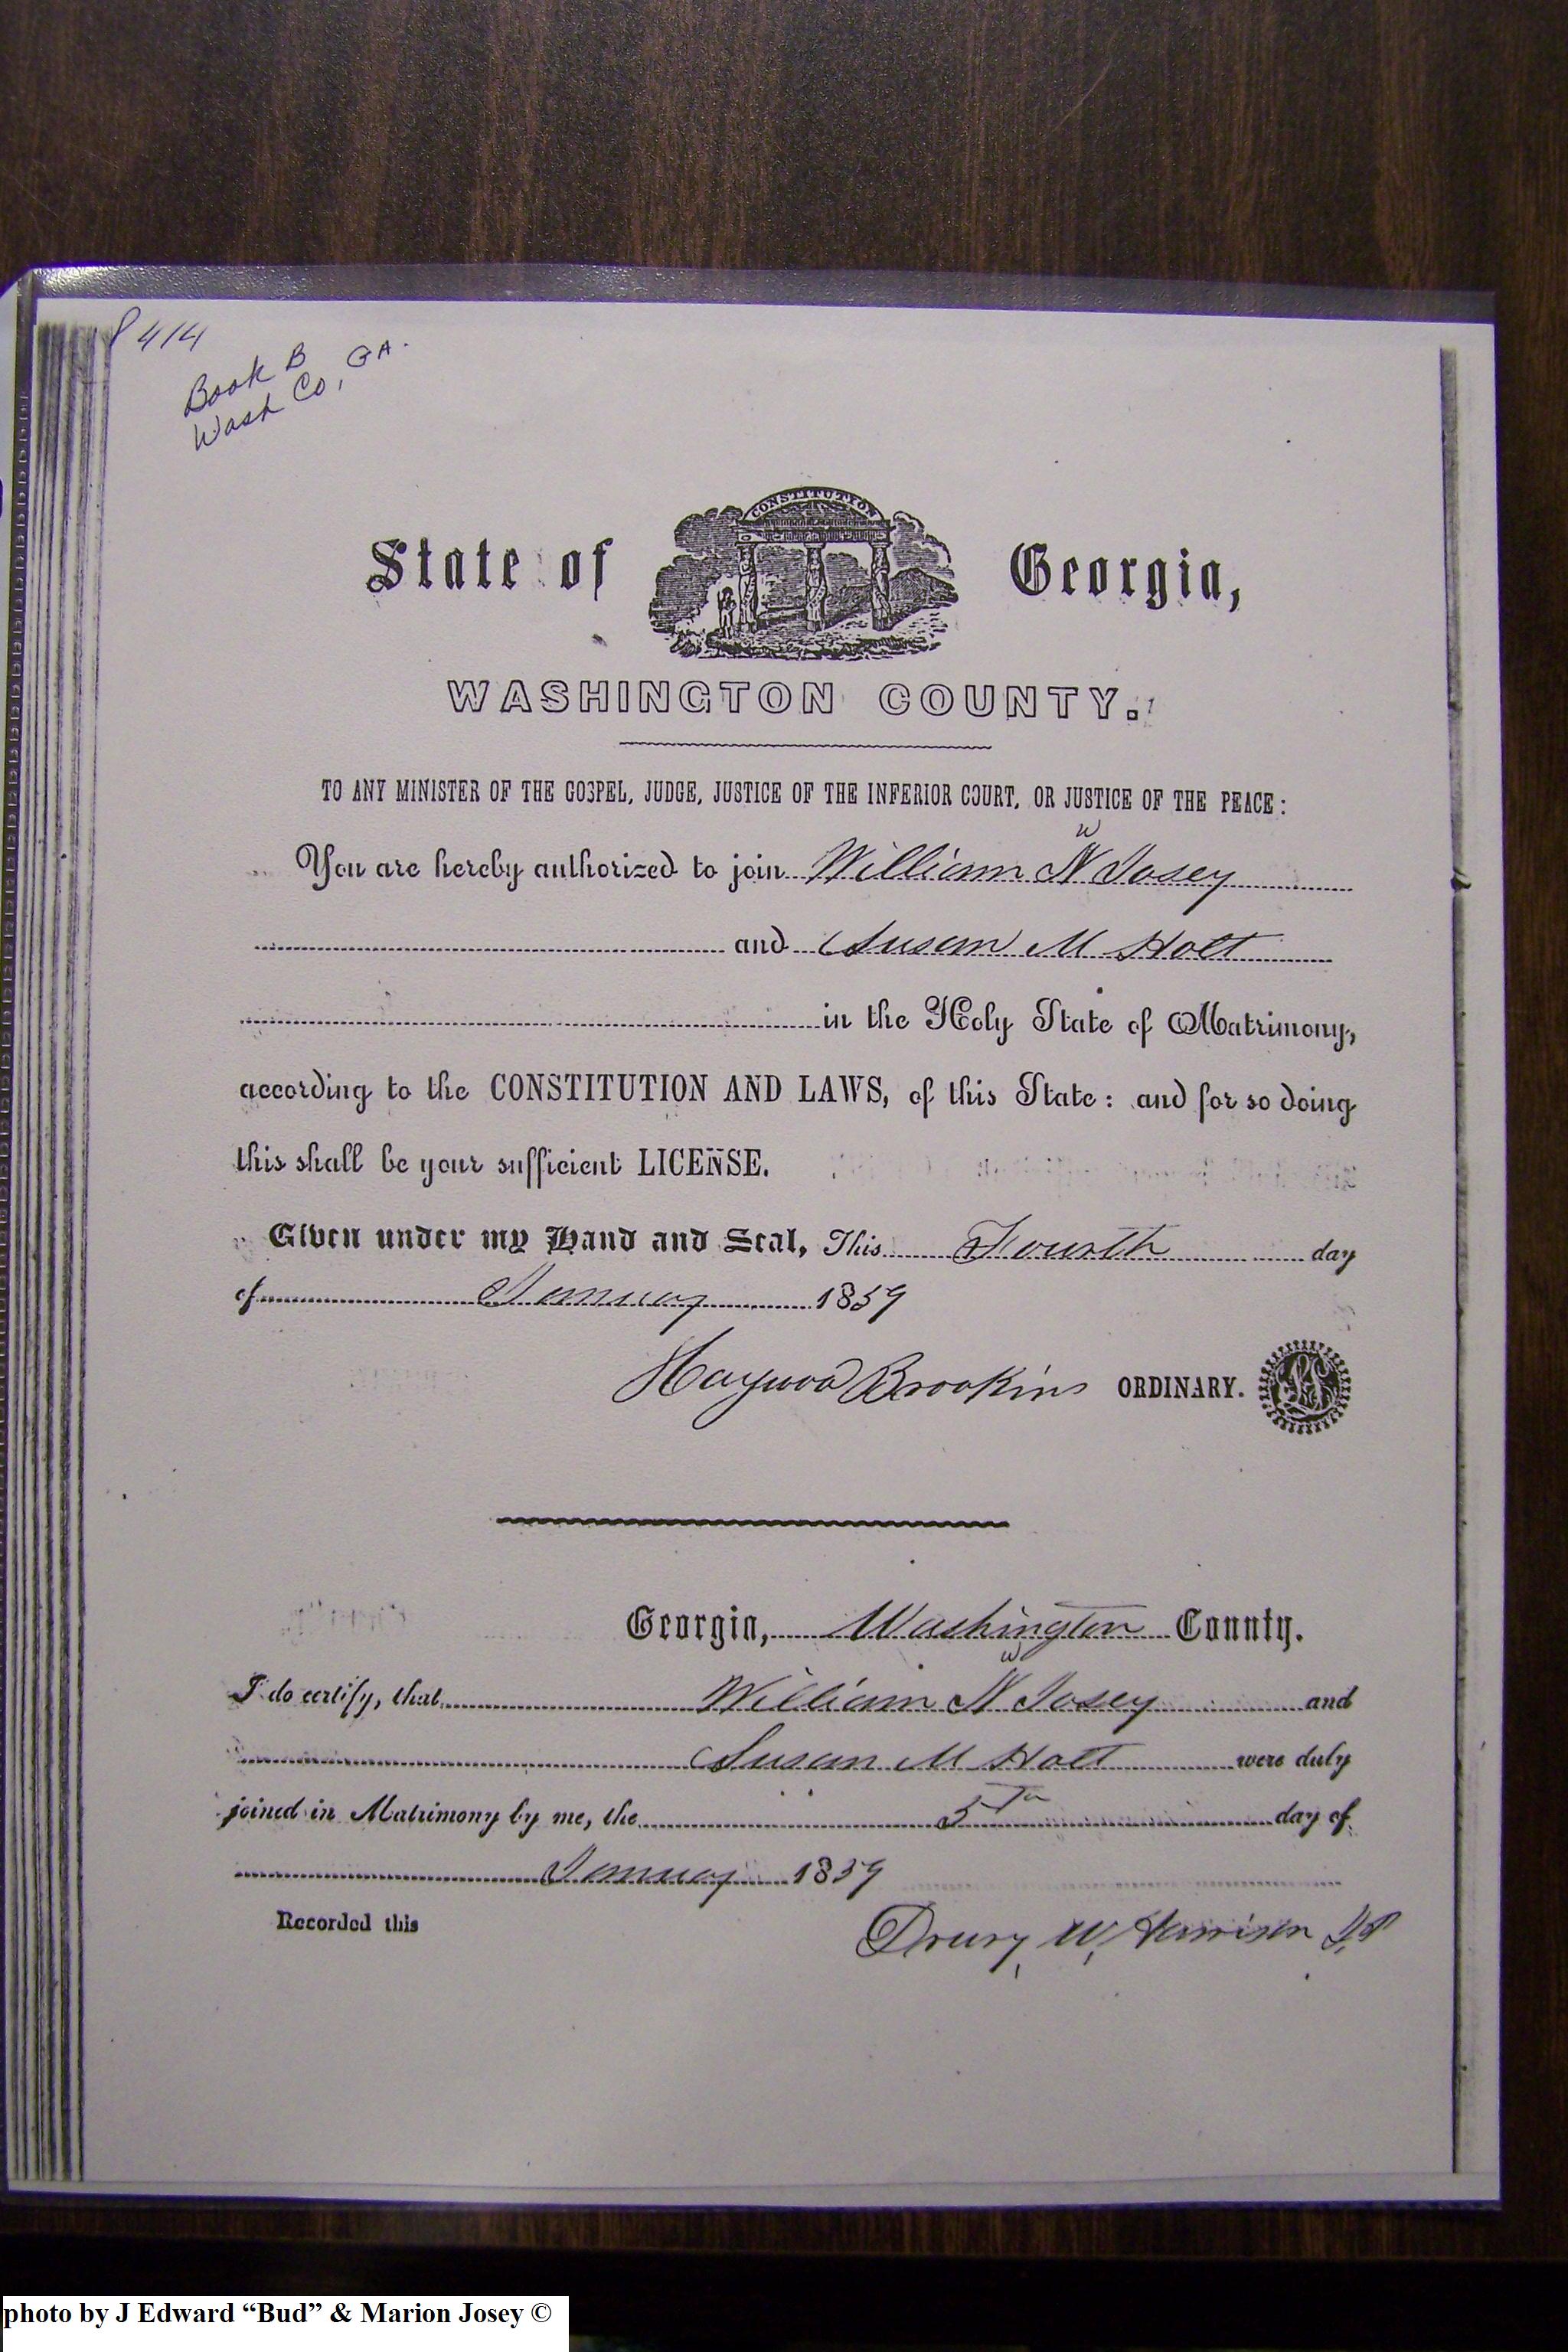 P 414
Book B
Wash Co, GA.
CONSTITUTION
State of Georgia,
WASHINGTON COUNTY.
TO ANY MINISTER OF THE GOSPEL, JUDGE, JUSTICE OF THE INFERIOR COURT, OR JUSTICE OF THE PEACE:
w
You are hereby authorized to join William N Josey
and Susan M Holt
in the Holy State of Matrimony,
according to the CONSTITUTION AND LAWS, of this State: and for so doing
this shall be your sufficient LICENSE.
Given under my Hand and Seal, This Fourth day
of January 1859
Haywood Brookins ORDINARY. LS
Georgia, Washington County.
w
I do certify, that William N Josey and
Susan M Holt were duly
joined in Matrimony by me, the 5th day of
January 1859
Recorded this
Drury W, Harrison J,P
photo by J Edward “Bud” & Marion Josey ©